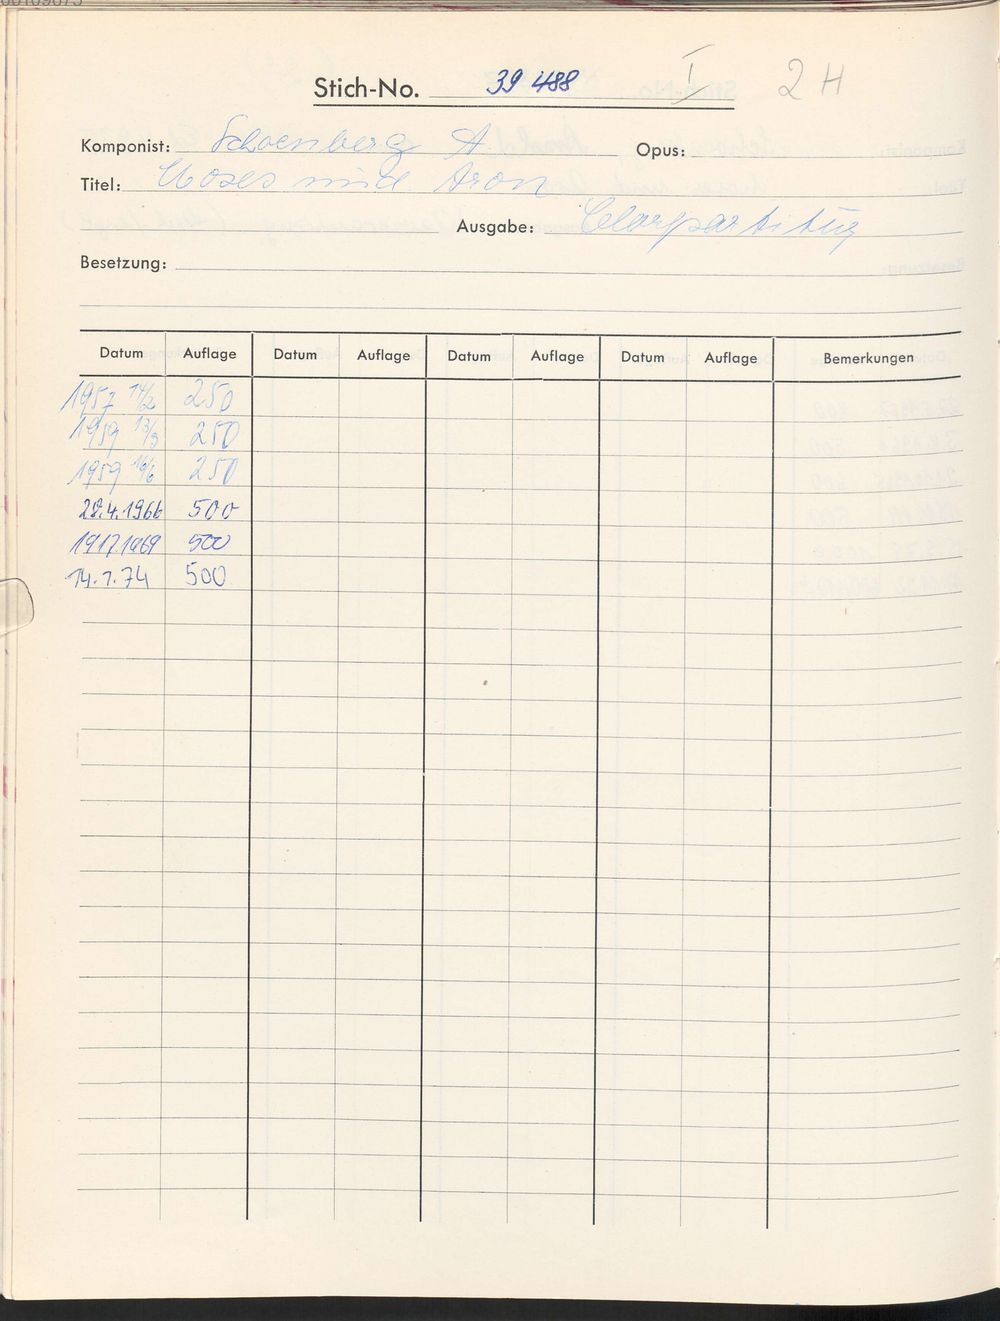 Stich-No. 39 488 I 2 H
Komponist: Schoenberg A Opus:
Titel: Moses und Aron
Ausgabe: Chorpartitur
Besetzung:
Datum Auflage Datum Auflage Datum Auflage Datum Auflage Bemerkungen
1957 14/2 250
1959 13/3 250
1959 16/6 250
28.4.1966 500
1969 500
14.1.74 500